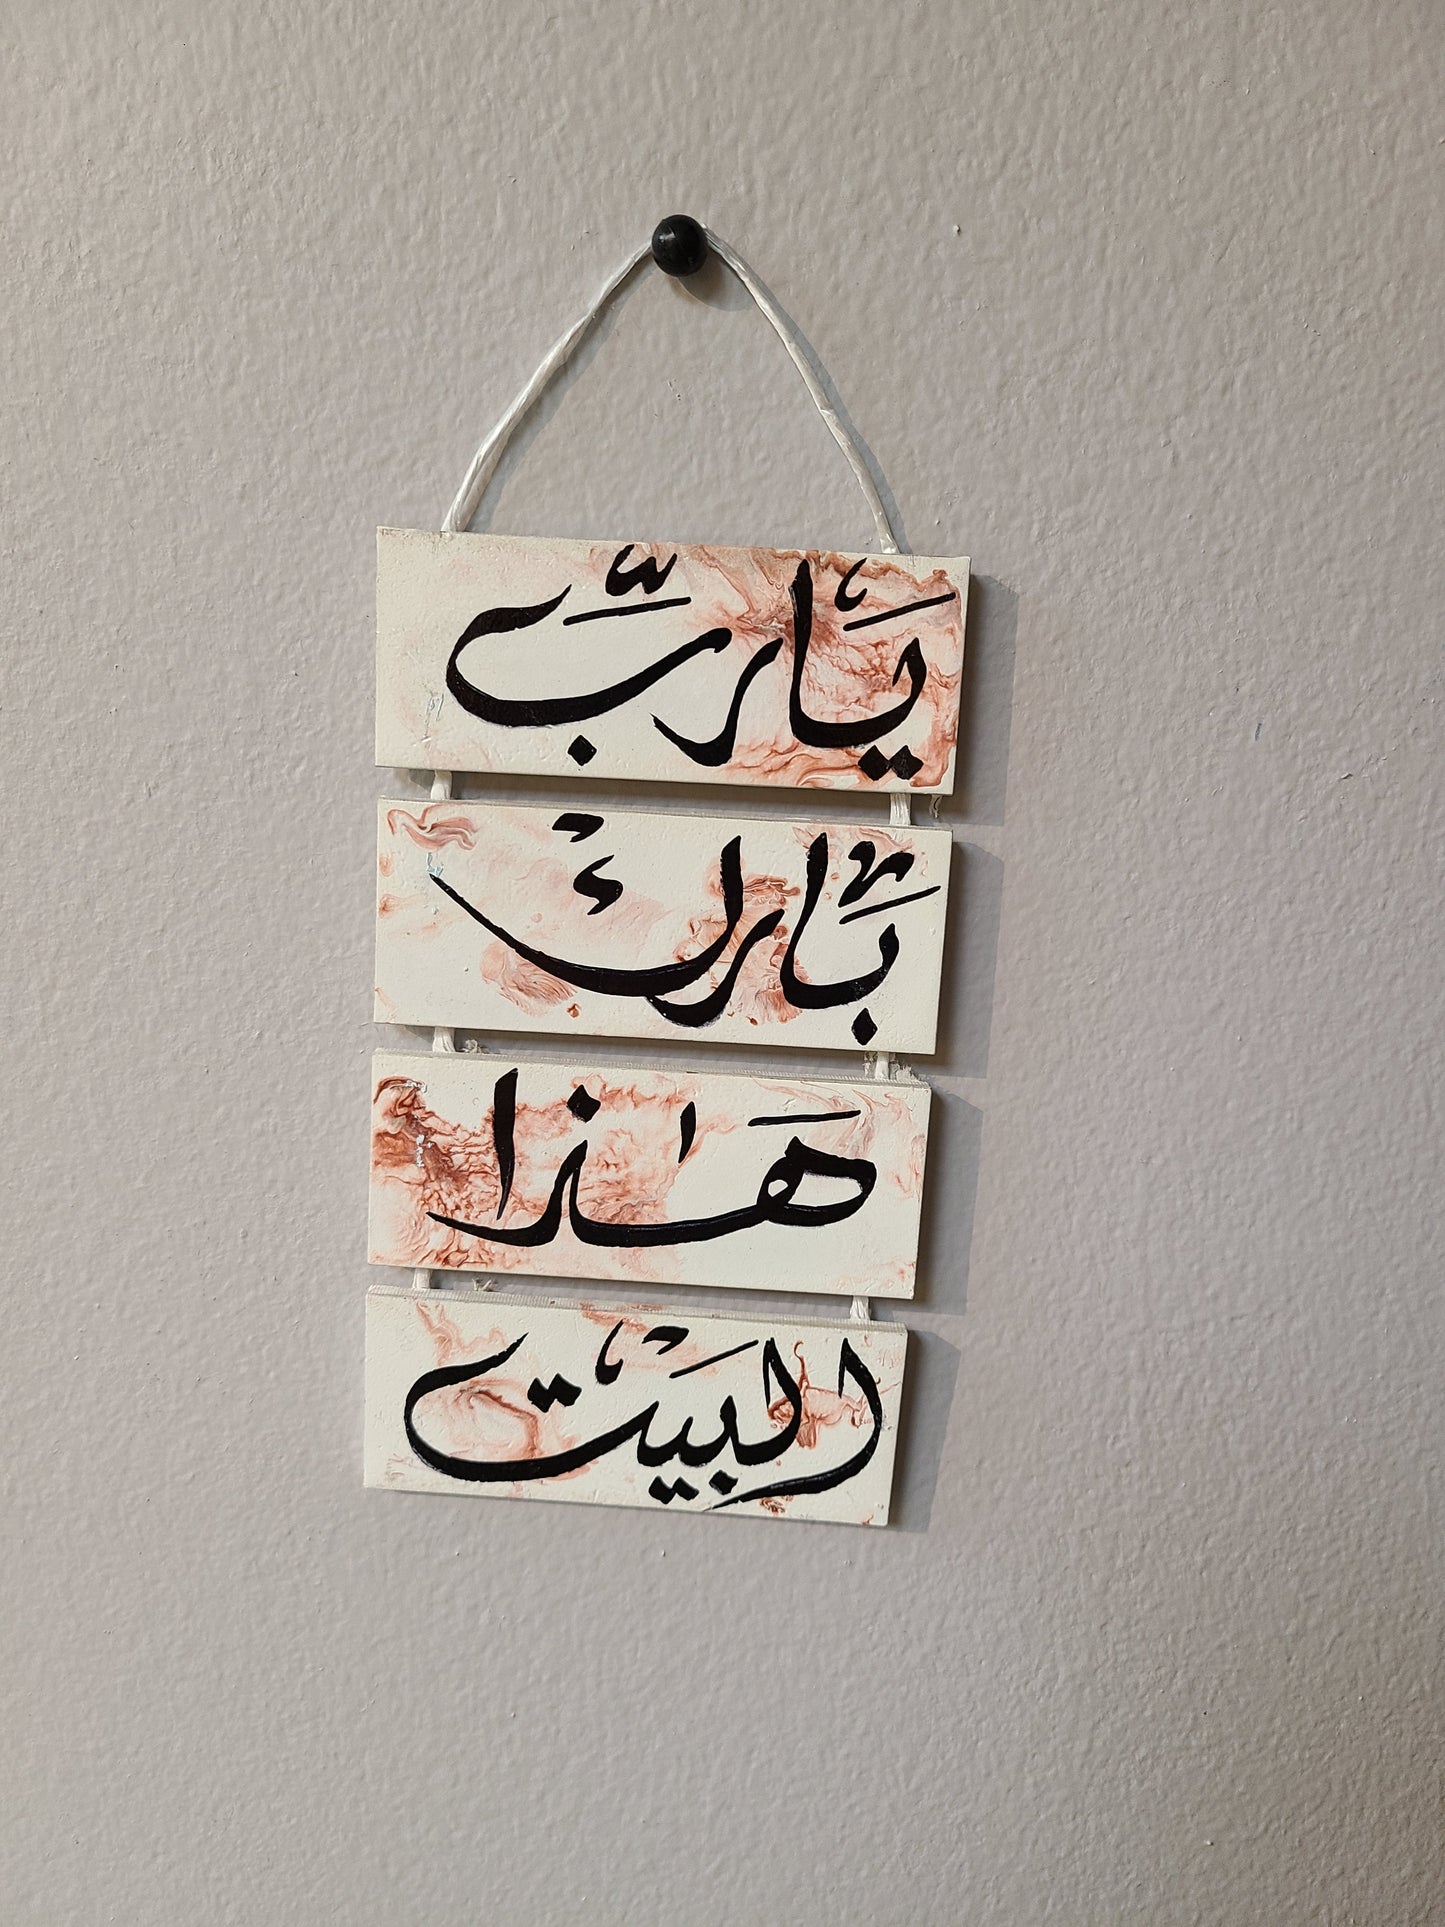 يا ربّ
بارك
هذا
البيت